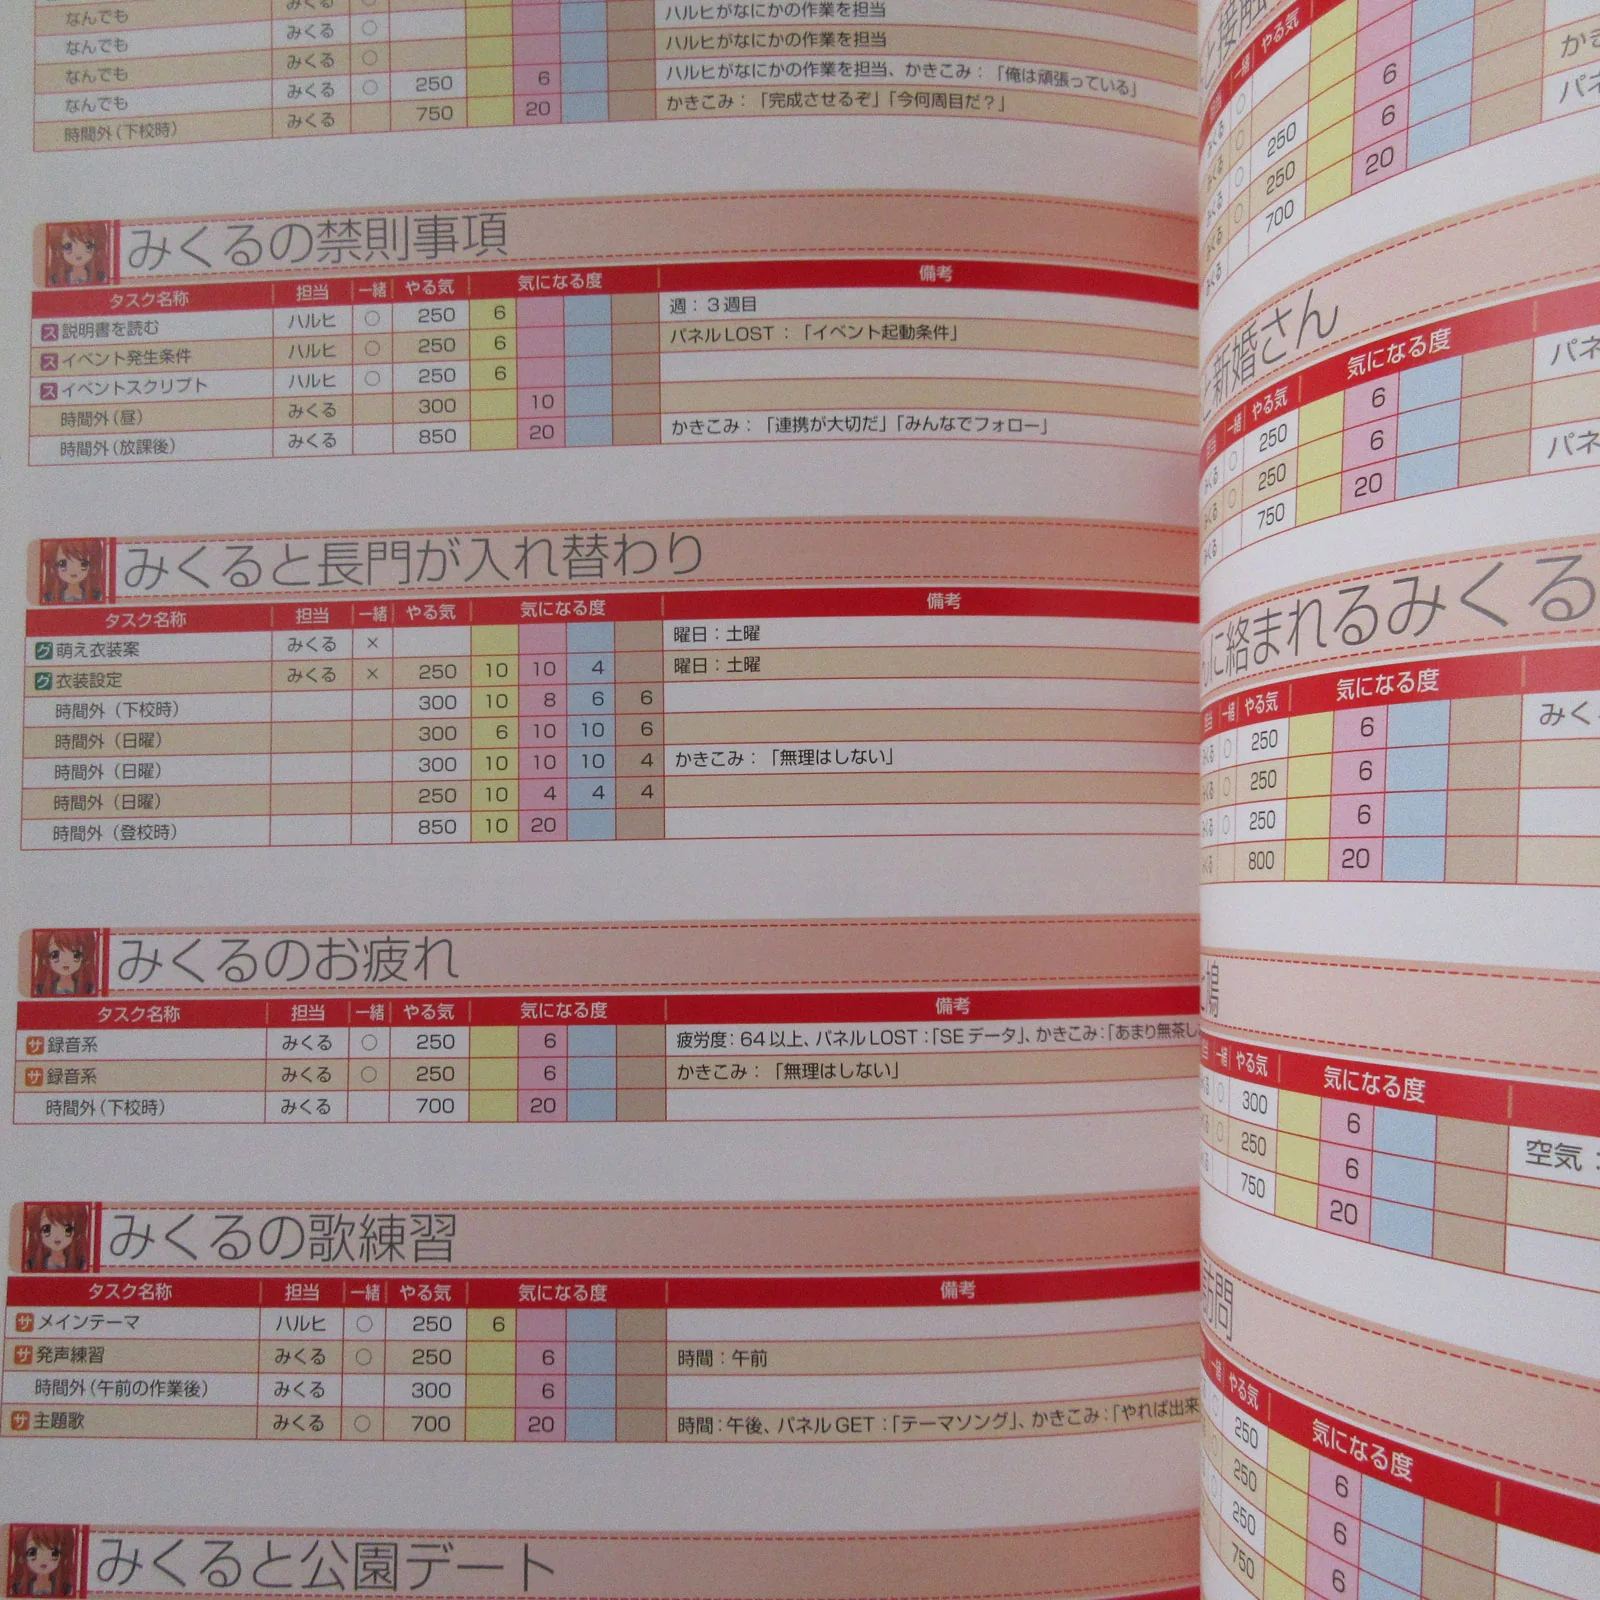 なんでも みくる ○ ハルヒがなにかの作業を担当
なんでも みくる ○ ハルヒがなにかの作業を担当
なんでも みくる ○ 250 6 ハルヒがなにかの作業を担当、かきこみ：「俺は頑張っている」
なんでも みくる ○ 750 20 かきこみ：「完成させるぞ」「今何周目だ？」
時間外（下校時） みくる
みくるの禁則事項
タスク名称 担当 一緒 やる気 気になる度 備考
ス 説明書を読む ハルヒ ○ 250 6 週：3週目
ス イベント発生条件 ハルヒ ○ 250 6 パネルLOST：「イベント起動条件」
ス イベントスクリプト ハルヒ ○ 250 6
時間外（昼） みくる 300 10
時間外（放課後） みくる 850 20 かきこみ：「連携が大切だ」「みんなでフォロー」
みくると長門が入れ替わり
タスク名称 担当 一緒 やる気 気になる度 備考
グ 萌え衣装案 みくる × 曜日：土曜
グ 衣装設定 みくる × 250 10 10 4 曜日：土曜
時間外（下校時） 300 10 8 6 6
時間外（日曜） 300 6 10 10 6
時間外（日曜） 300 10 10 10 4 かきこみ：「無理はしない」
時間外（日曜） 250 10 4 4 4
時間外（登校時） 850 10 20
みくるのお疲れ
タスク名称 担当 一緒 やる気 気になる度 備考
サ 録音系 みくる ○ 250 6 疲労度：64以上、パネルLOST：「SEデータ」、かきこみ：「あまり無茶し
サ 録音系 みくる ○ 250 6 かきこみ：「無理はしない」
時間外（下校時） みくる 700 20
みくるの歌練習
タスク名称 担当 一緒 やる気 気になる度 備考
サ メインテーマ ハルヒ ○ 250 6
サ 発声練習 みくる ○ 250 6 時間：午前
時間外（午前の作業後） みくる 300 6
サ 主題歌 みくる ○ 700 20 時間：午後、パネルGET：「テーマソング」、かきこみ：「やれば出来
みくると公園デート
と接触
一緒 やる気
みくる ○ 6 かき
みくる ○ 250 6 パネ
みくる ○ 250 20
みくる ○ 700
みくる
と新婚さん
担当 一緒 やる気 気になる度
みくる ○ 250 6 パネ
みくる ○ 250 6
みくる 750 20 パネ
に絡まれるみくる
担当 一緒 やる気 気になる度
みくる ○ 250 6 みく
みくる ○ 250 6
みくる ○ 250 6
みくる 800 20
と鳩
一緒 やる気 気になる度
○ 300 6 空気：
○ 250 6
750 20
訪問
一緒 やる気 気になる度
250 6
250 6
250 6
750